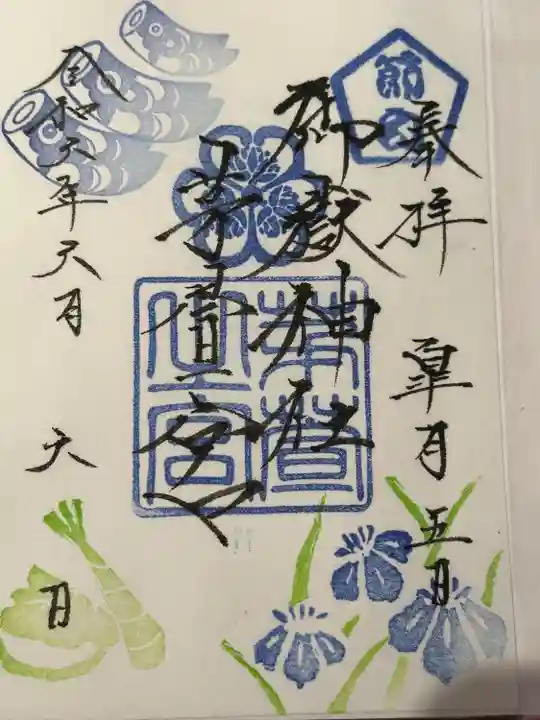 奉拝
皐月五日
節句
御嶽神社
茅萱宮
令和六年六月
六日